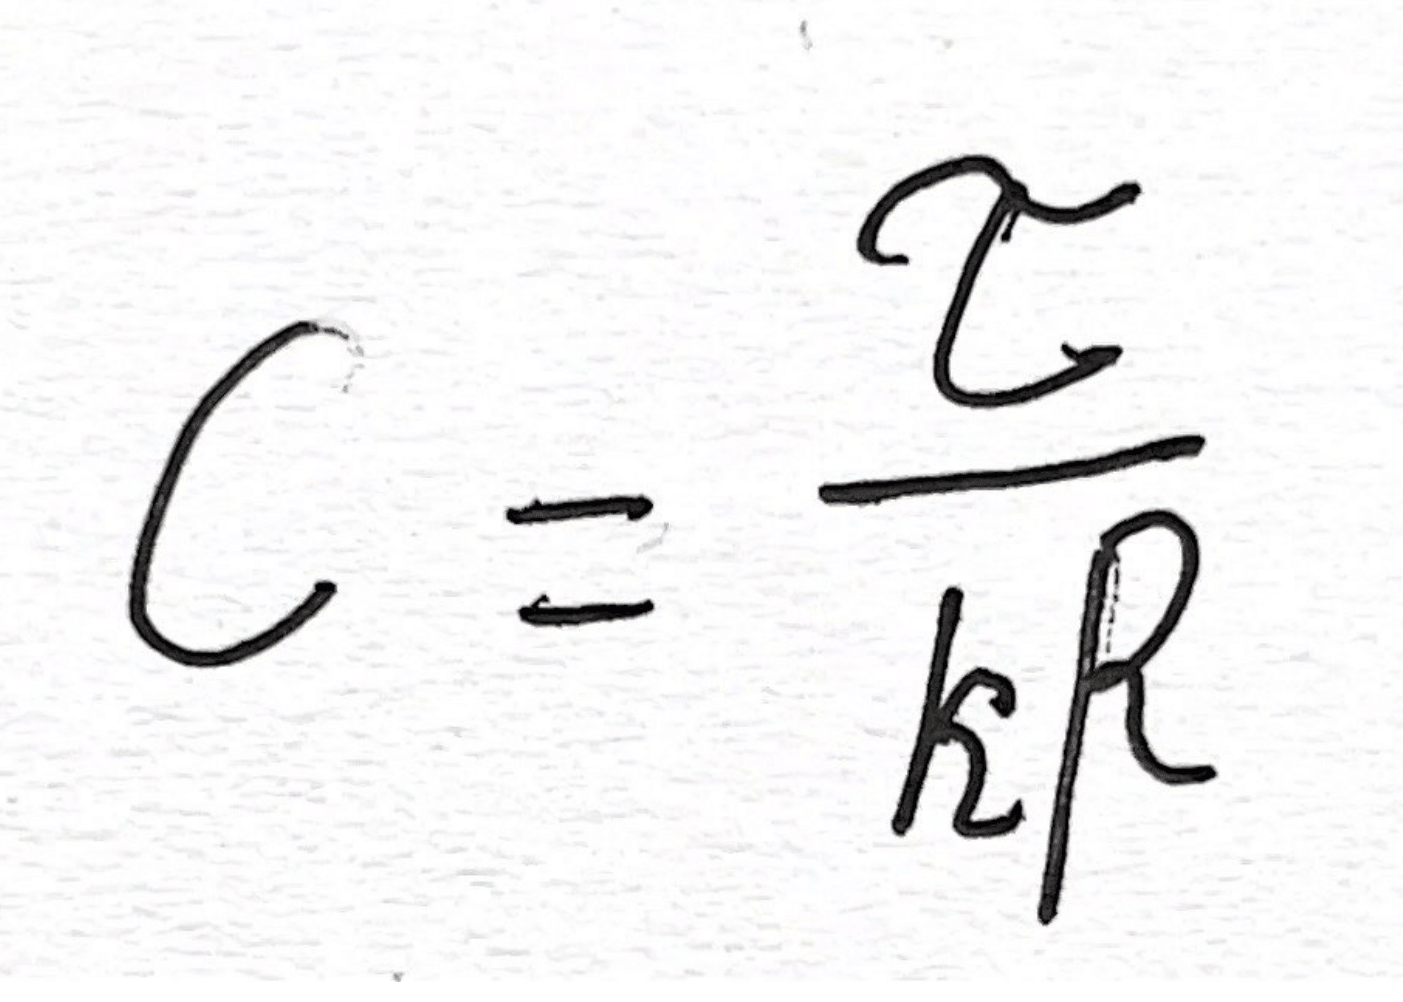 C = τ / kR